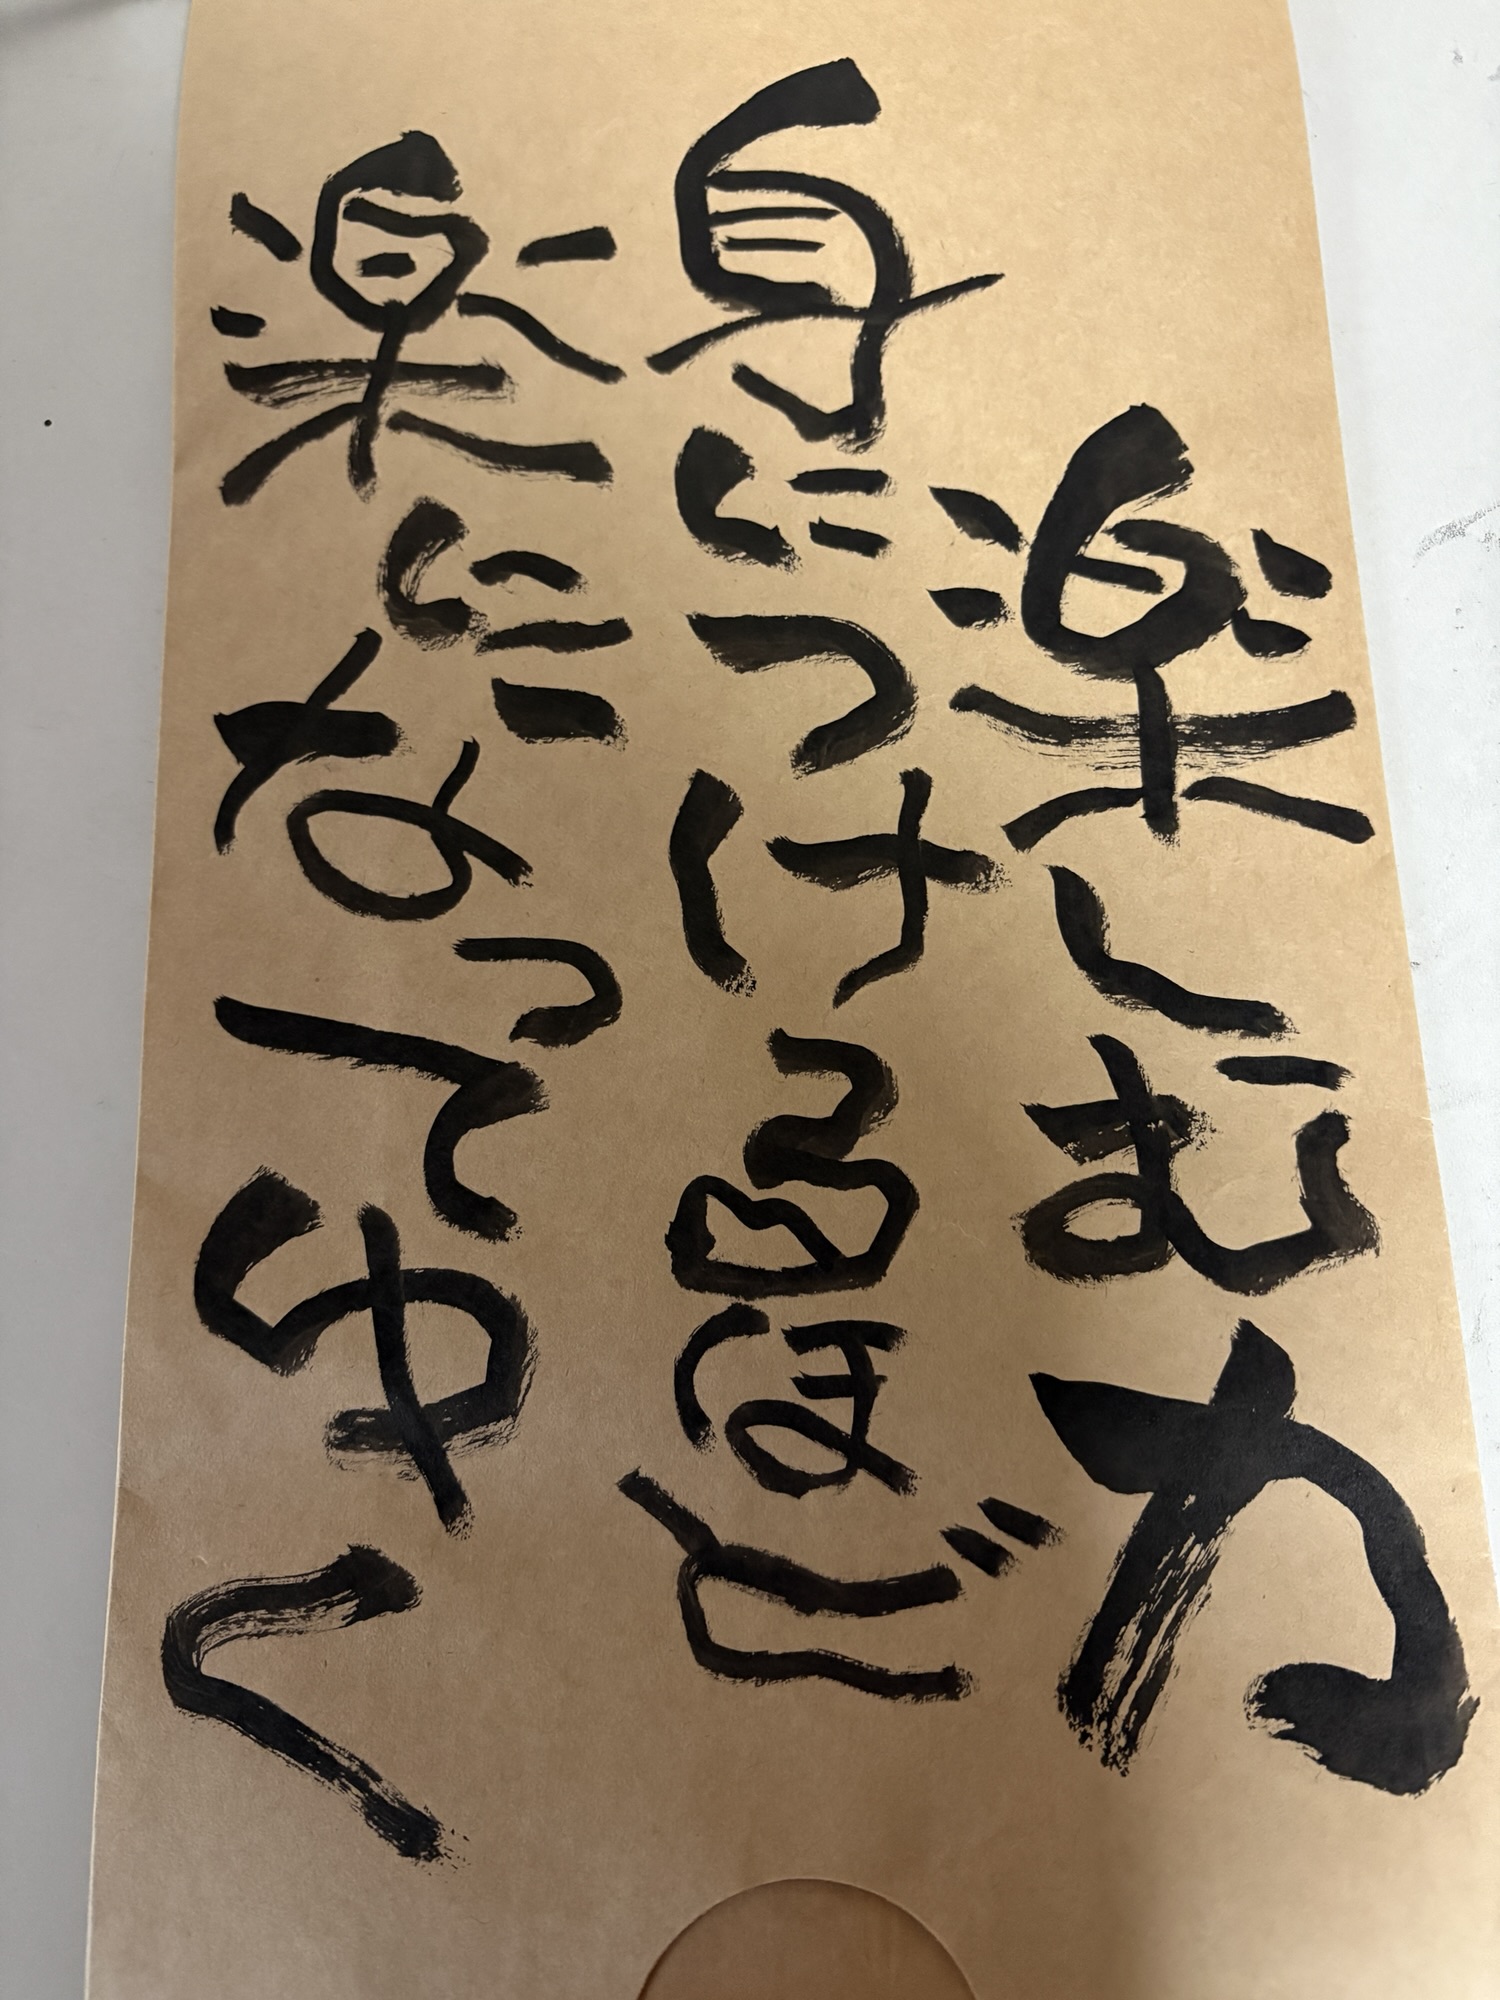 楽しむ力
身につけるほど
楽になってゆく